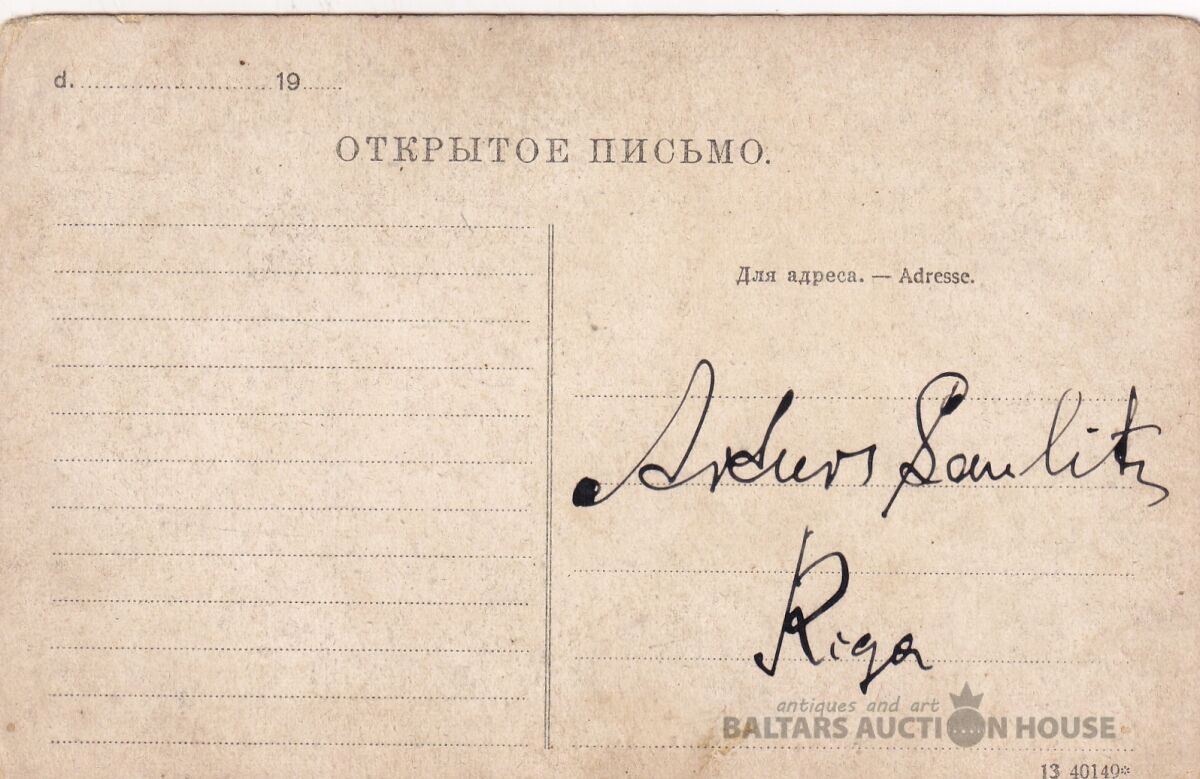 d. 19
ОТКРЫТОЕ ПИСЬМО.
Для адреса. — Adresse.
Arturs
Riga
antiques and art
BALTARS AUCTION HOUSE
13 40149*